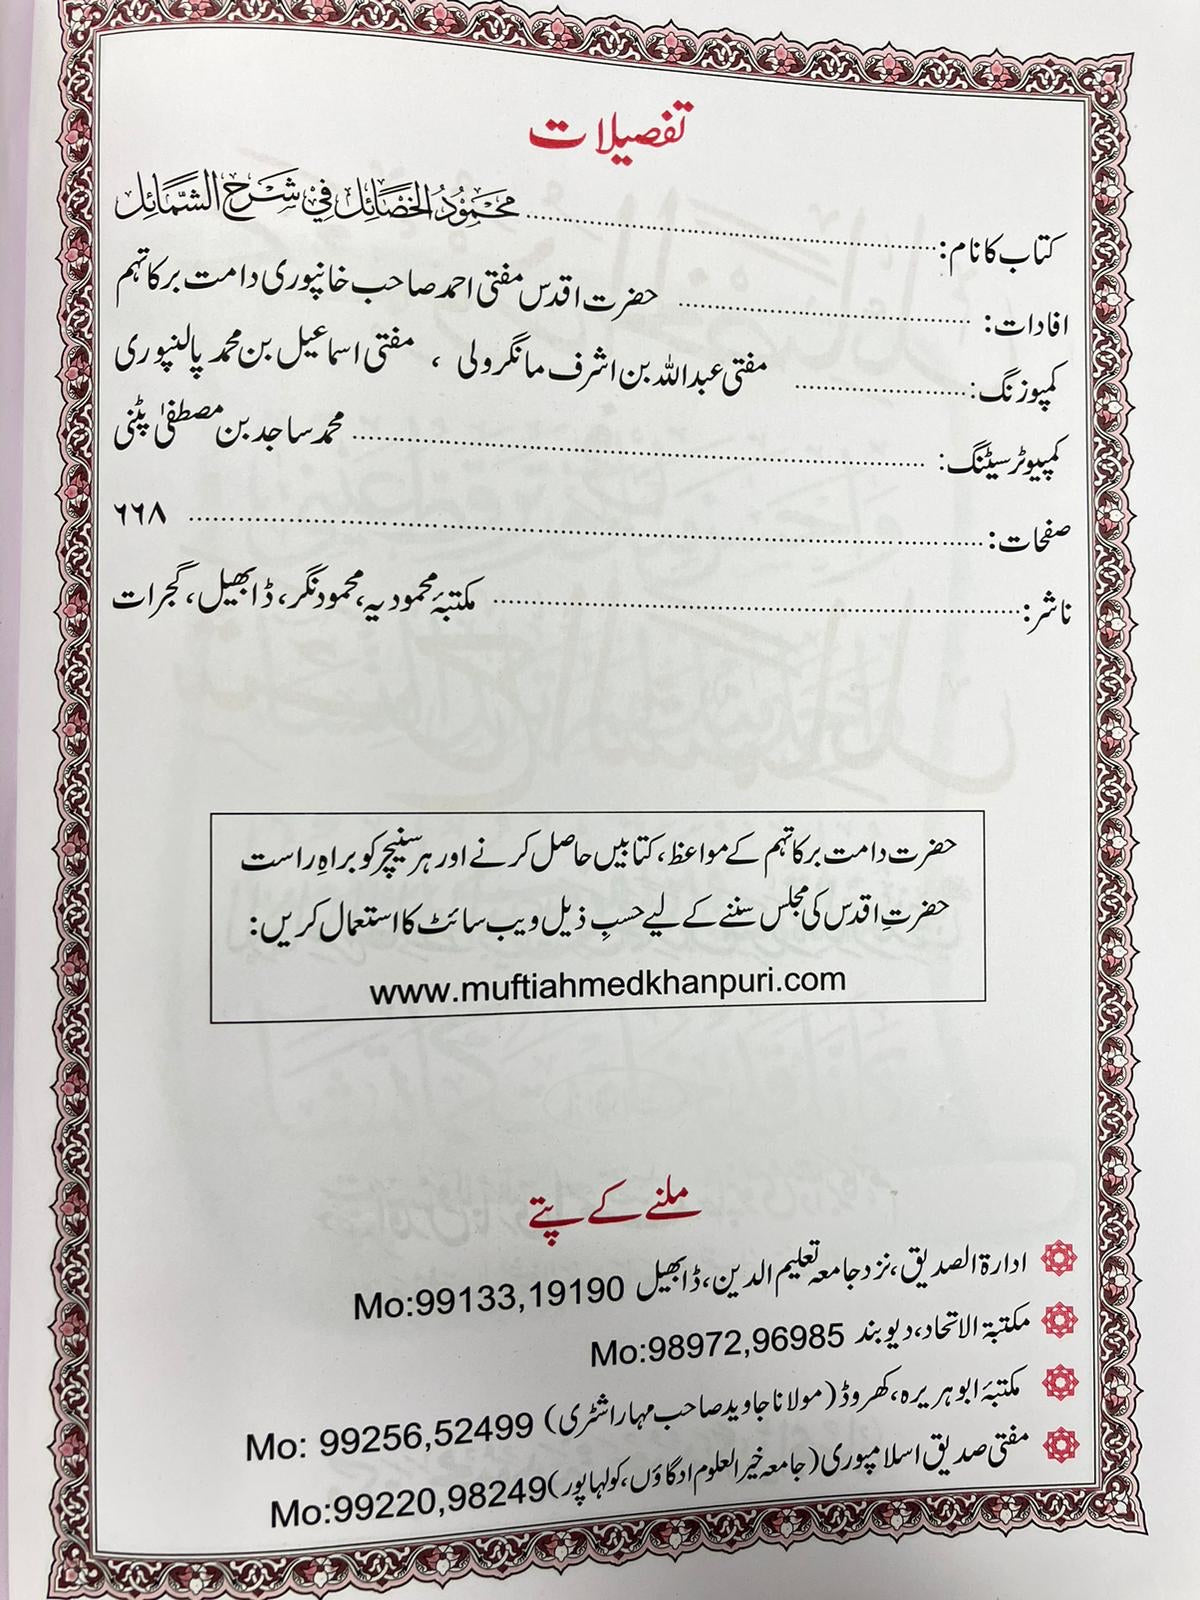 تفصیلات
کتاب کا نام: ........................ مَحْمُوْدُ الْخَصَائِل فِيْ شَرْحِ الشَّمَائِل
افادات: ........................ حضرت اقدس مفتی احمد صاحب خانپوری دامت برکاتہم
کمپوزنگ: ............ مفتی عبداللہ بن اشرف مانگرولی ، مفتی اسماعیل بن محمد پالنپوری
کمپیوٹر سیٹنگ: ........................ محمد ساجد بن مصطفیٰ پٹنی
صفحات: ........................ ۶۶۸
ناشر: ........................ مکتبۂ محمودیہ، محمود نگر، ڈابھیل، گجرات
حضرت دامت برکاتہم کے مواعظ، کتابیں حاصل کرنے اور ہر سنیچر کو براہِ راست
حضرتِ اقدس کی مجلس سننے کے لیے حسبِ ذیل ویب سائٹ کا استعمال کریں:
www.muftiahmedkhanpuri.com
ملنے کے پتے
ادارۃ الصدیق، نزد جامعہ تعلیم الدین، ڈابھیل Mo:99133,19190
مکتبۃ الاتحاد، دیوبند Mo:98972,96985
مکتبۂ ابو ہریرہ، کھروڈ (مولانا جاوید صاحب مہاراشٹری) Mo: 99256,52499
مفتی صدیق اسلامپوری (جامعہ خیر العلوم ادگاؤں، کولہاپور) Mo:99220,98249